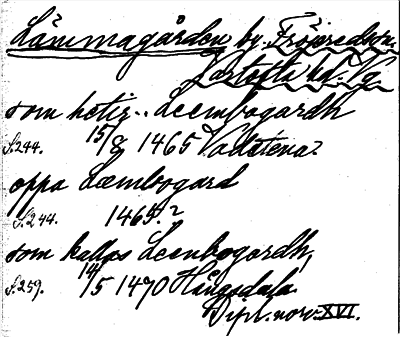 Lämmagården by. Fröjeredstn.
Vartofta hd. Vg.
som hetir.. Leembogardh
S.244. 15/8 1465 Vadstena?
oppa Læmbogard
S.244. 1465.?
som kallas Leenbogardh,
S.259. 14/5 1470 Hångsdala.
Dipl. norv. XVI.